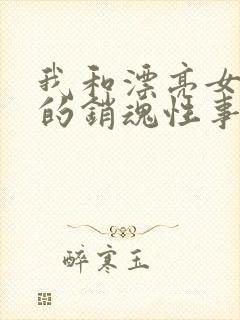 我和漂亮女
的銷魂性事
醉寒玉